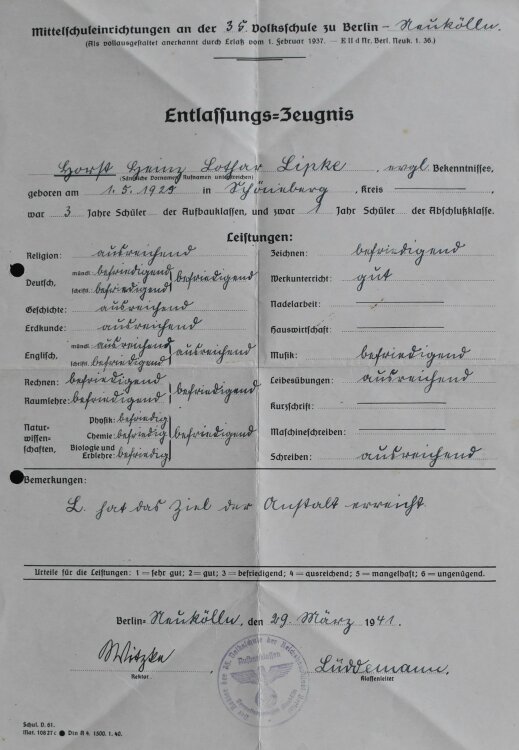 Mittelschuleinrichtungen an der 35. Volksschule zu Berlin – Neukölln.
(Als vollausgestaltet anerkannt durch Erlaß vom 1. Februar 1937. — E II d Nr. Berl. Neuk. 1. 36.)
Entlassungs=Zeugnis
Horst Heinz Lothar Lipke, evgl. Bekenntnisses,
(Sämtliche Vornamen, Rufnamen unterstreichen)
geboren am 1. 5. 1925 in Schöneberg, Kreis
war 3 Jahre Schüler der Aufbauklassen, und zwar 1 Jahr Schüler der Abschlußklasse.
Leistungen:
Religion: ausreichend
Deutsch, mündl. befriedigend befriedigend
schriftl. befriedigend
Geschichte: ausreichend
Erdkunde: ausreichend
Englisch, mündl. ausreichend ausreichend
schriftl. befriedigend
Rechnen: befriedigend befriedigend
Raumlehre: befriedigend
Naturwissen-
schaften, Physik: befriedig befriedigend
Chemie: befriedig
Biologie und
Erblehre: befriedig
Zeichnen: befriedigend
Werkunterricht: gut
Nadelarbeit:
Hauswirtschaft:
Musik: befriedigend
Leibesübungen: ausreichend
Kurzschrift:
Maschineschreiben:
Schreiben: ausreichend
Bemerkungen:
L. hat das Ziel der Anstalt erreicht
Urteile für die Leistungen: 1 = sehr gut; 2 = gut; 3 = befriedigend; 4 = ausreichend; 5 = mangelhaft; 6 = ungenügend.
Berlin-Neukölln, den 29. März 1941.
Witzke
Rektor.
Lüddemann.
Klassenleiter
Aufbauklassen
Schul. D. 61.
Mat. 10827 c. Din A 4. 1500. 1. 40.